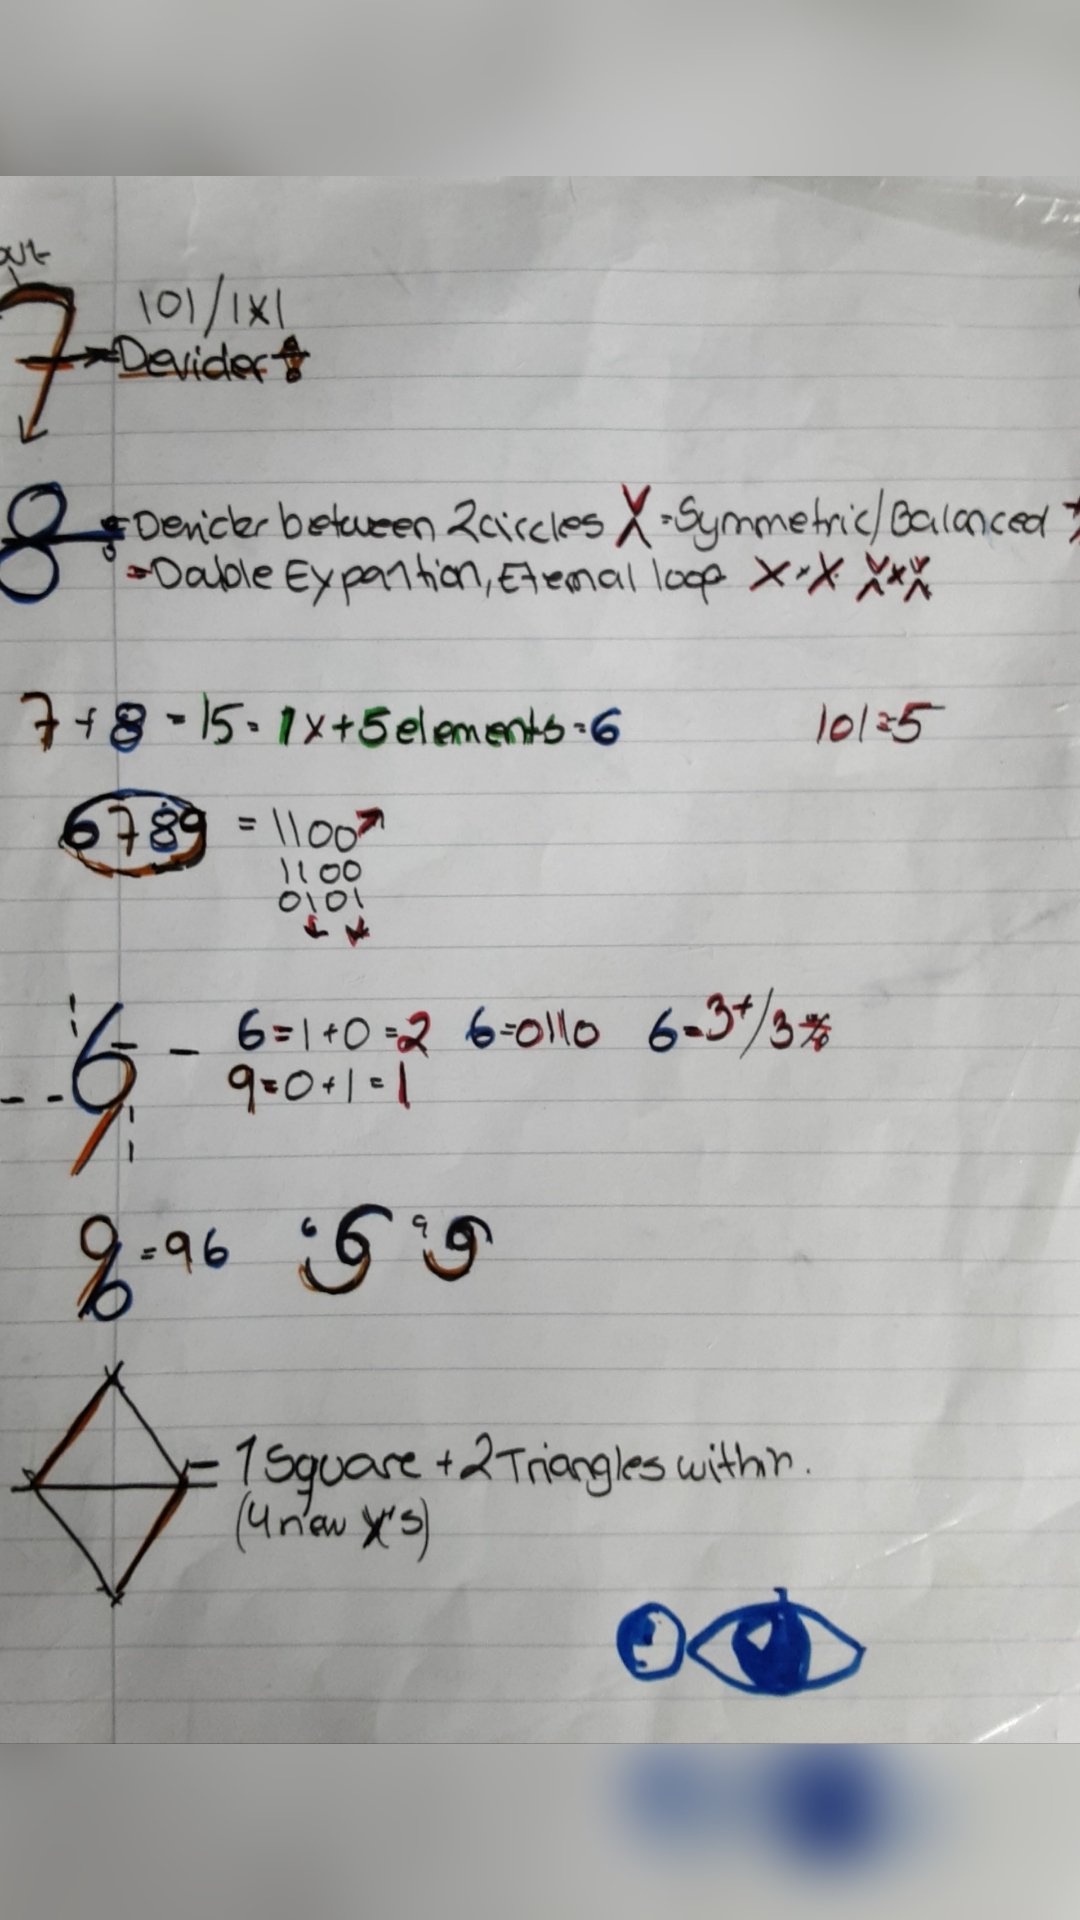 out
101/1x1
7 Devider ÷
8 = Devider between 2 circles X = Symmetric/Balanced
= Double Expantion, Eternal loop X x X
7 + 8 = 15 = 1x + 5 elements = 6 101=5
6789 = 1100
1100
0101
6 = 1 + 0 = 2 6=0110 6=3+/3
9 = 0 + 1 = 1
= 96 6 6 9 9
= 1 Square + 2 Triangles within.
(4 new X's)